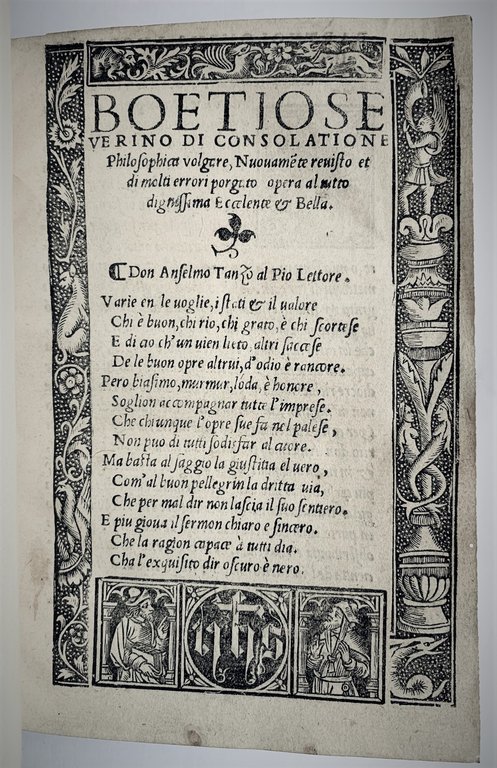 BOETIOSE
VERINO DI CONSOLATIONE
Philosophica volgare, Nuouamẽte reuisto et
di molti errori porgato opera al tutto
dignissima Eccelente & Bella.
Don Anselmo Tanzo al Pio Lettore.
Varie en le uoglie, i stati & il ualore
Chi è buon, chi rio, chi grato, è chi scortese
E di ao ch'un uien lieto, altri s'accese
De le buon opre altrui, d'odio è rancore.
Pero biasimo, murmur, loda, è honore,
Soglion accompagnar tutte l'imprese.
Che chiunque l'opre sue fa nel palese,
Non puo di tutti sodisfar al cuore.
Ma basta al saggio la giustitia el uero,
Com' al buon pellegrin la dritta uia,
Che per mal dir non lascia il suo sentiero.
E piu gioua il sermon chiaro e sincero.
Che la ragion capace à tutti dia.
Cha l'exquisito dir oscuro è nero.
yhs